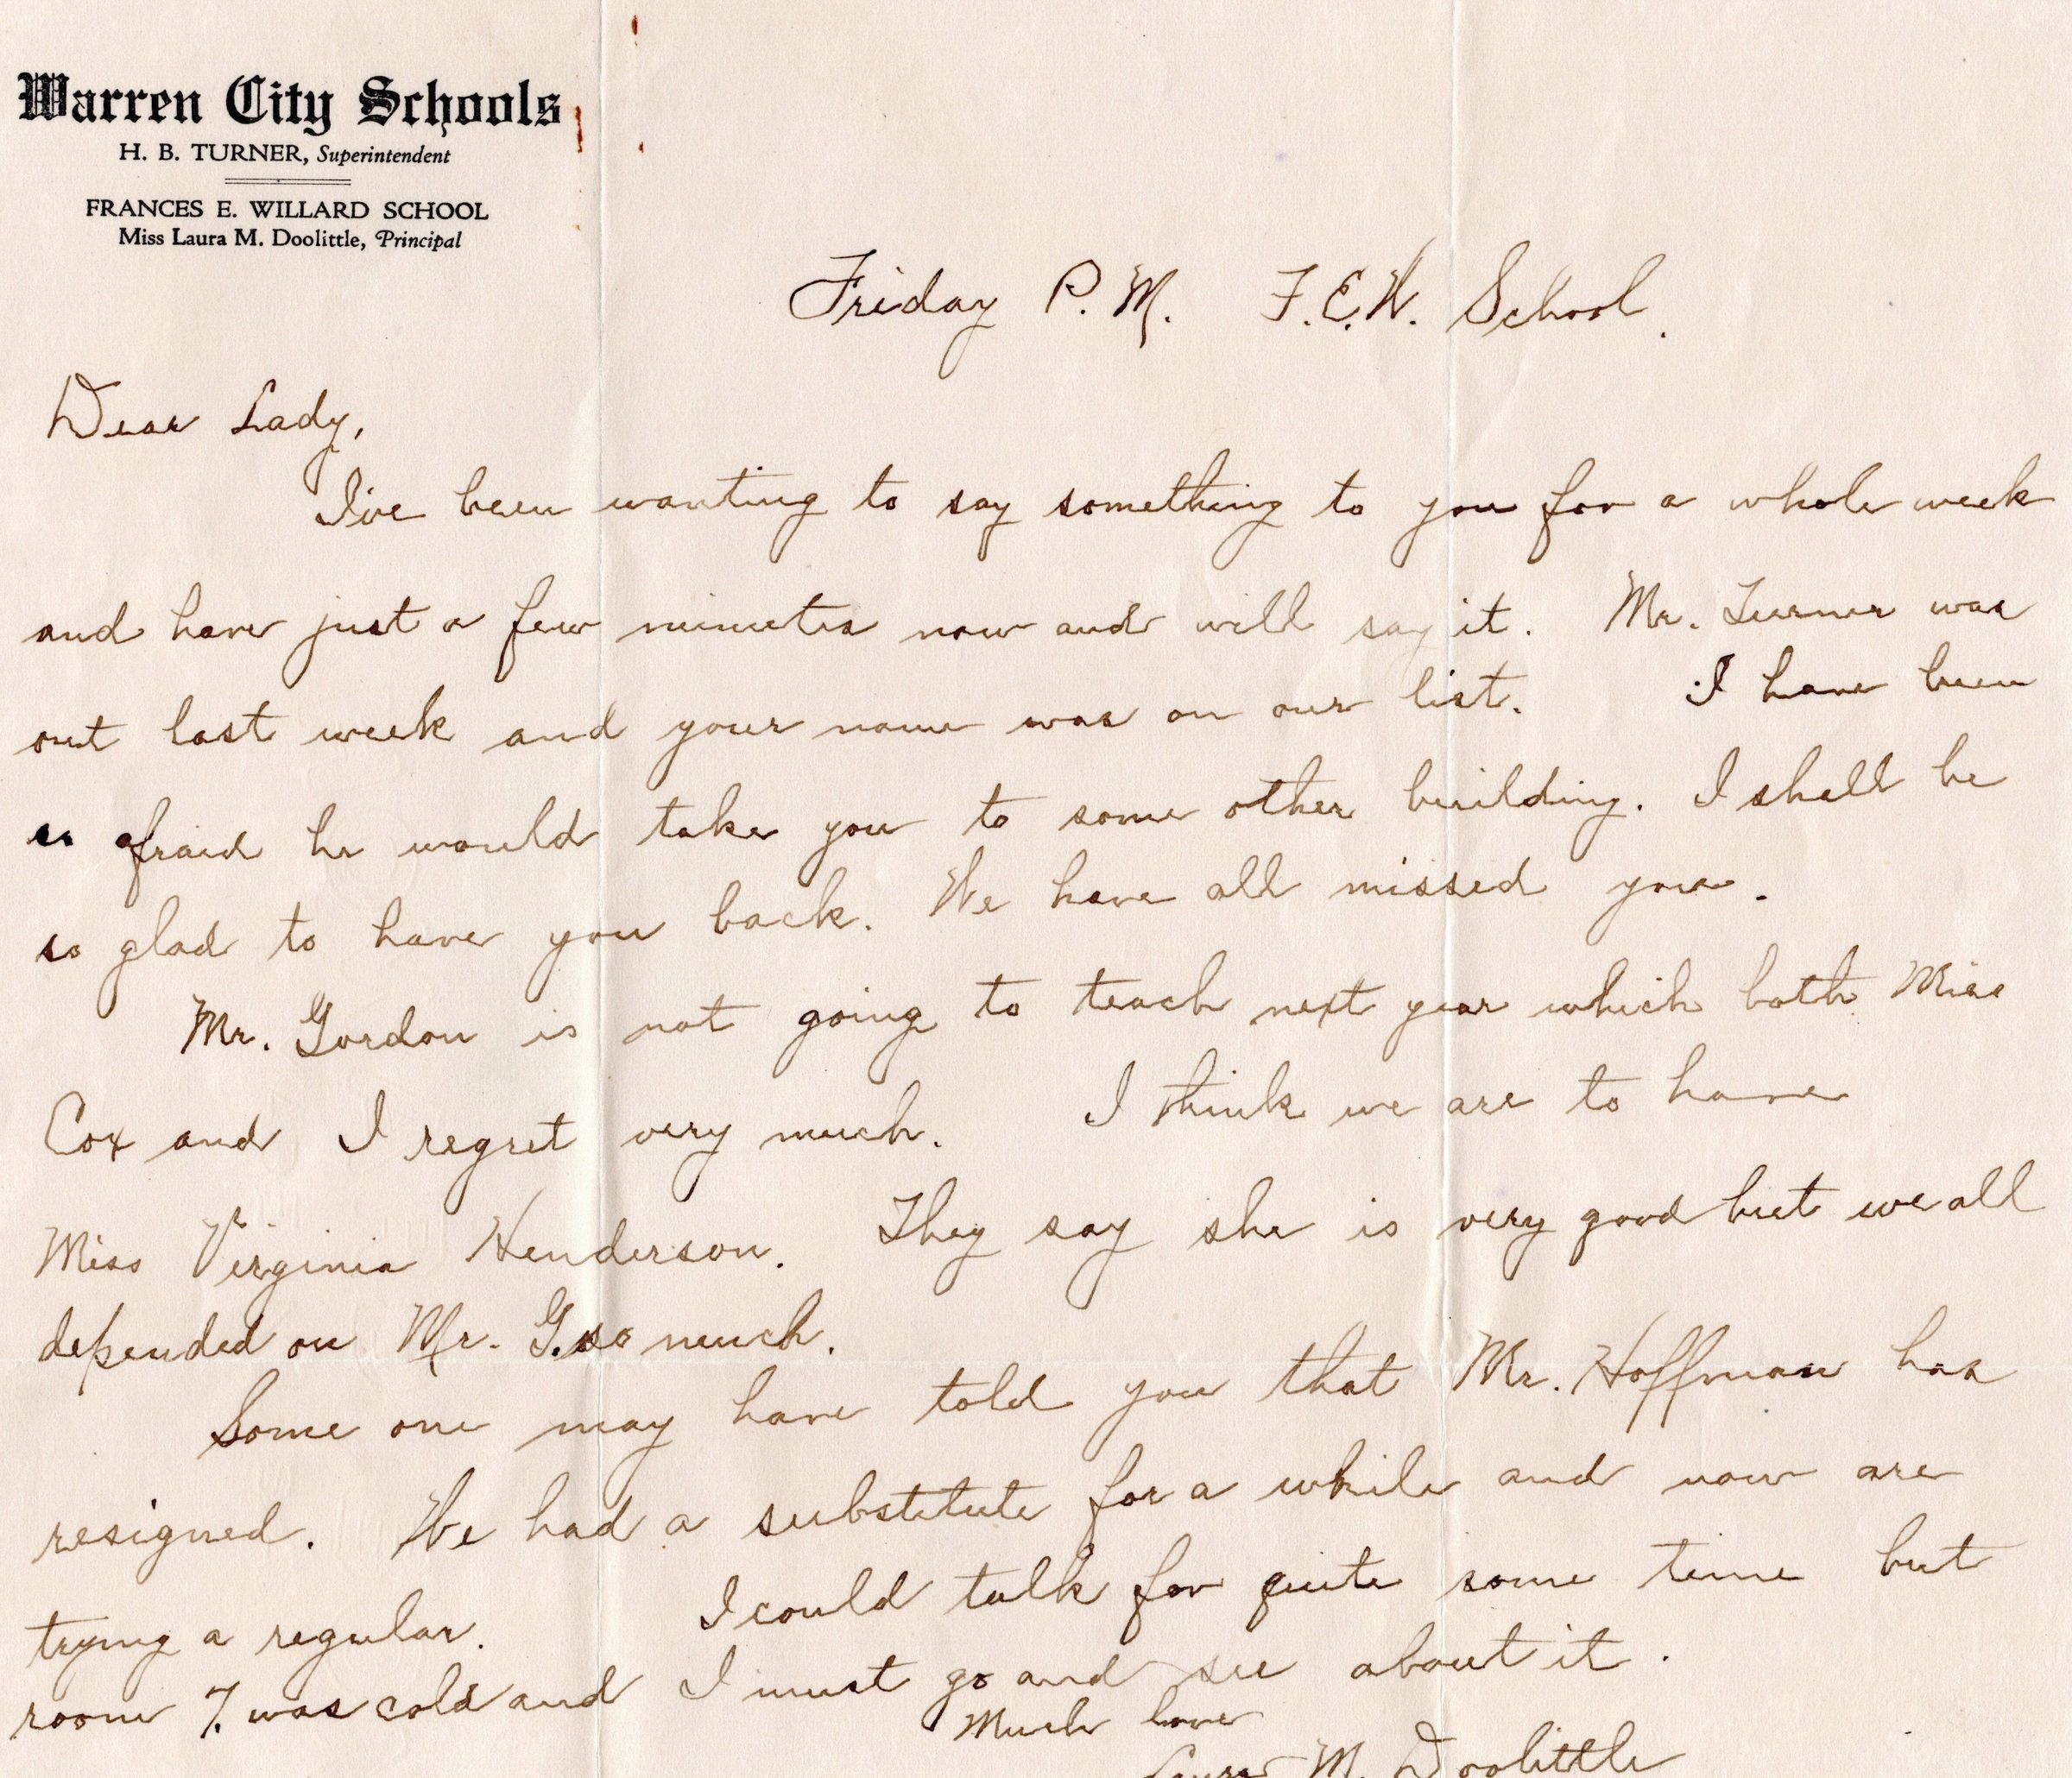 Warren City Schools
H. B. TURNER, Superintendent
FRANCES E. WILLARD SCHOOL
Miss Laura M. Doolittle, Principal
Friday P. M. F. E. W. School.
Dear Lady,
I've been wanting to say something to you for a whole week
and have just a few minutes now and will say it. Mr. Turner was
out last week and your name was on our list. I have been
so afraid he would take you to some other building. I shall be
so glad to have you back. We have all missed you.
Mr. Gordon is not going to teach next year which both Miss
Cox and I regret very much. I think we are to have
Miss Virginia Henderson. They say she is very good but we all
depended on Mr. G. so much.
Some one may have told you that Mr. Hoffman has
resigned. We had a substitute for a while and now are
trying a regular. I could talk for quite some time but
room 7. was cold and I must go and see about it.
Much love
Laura M. Doolittle